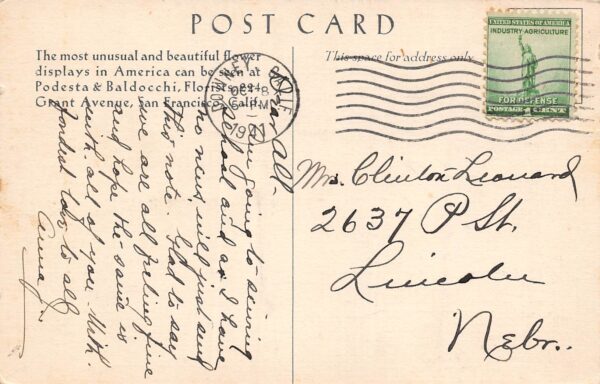 POST CARD
The most unusual and beautiful flower
displays in America can be seen at
Podesta & Baldocchi, Florists, 224
Grant Avenue, San Francisco, Calif.
This space for address only
UNITED STATES OF AMERICA
INDUSTRY-AGRICULTURE
FOR DEFENSE
1 CENT
OCT 8
PM
Dear All-
Am going to sewing
school and as I have
no news will just send
this note. Glad to say
we are all feeling fine
and hope the same is
with all of you. With
fondest love to all
Anna J.
Mrs. Clinton Leonard
2637 P St.
Lincoln
Nebr.